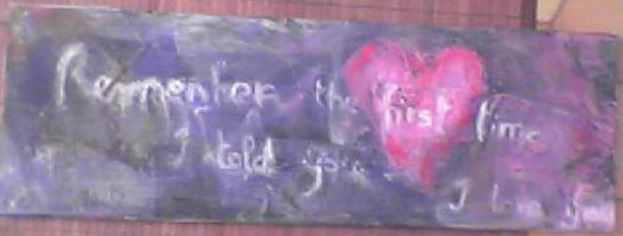 Remember the first time
I told you
I love you